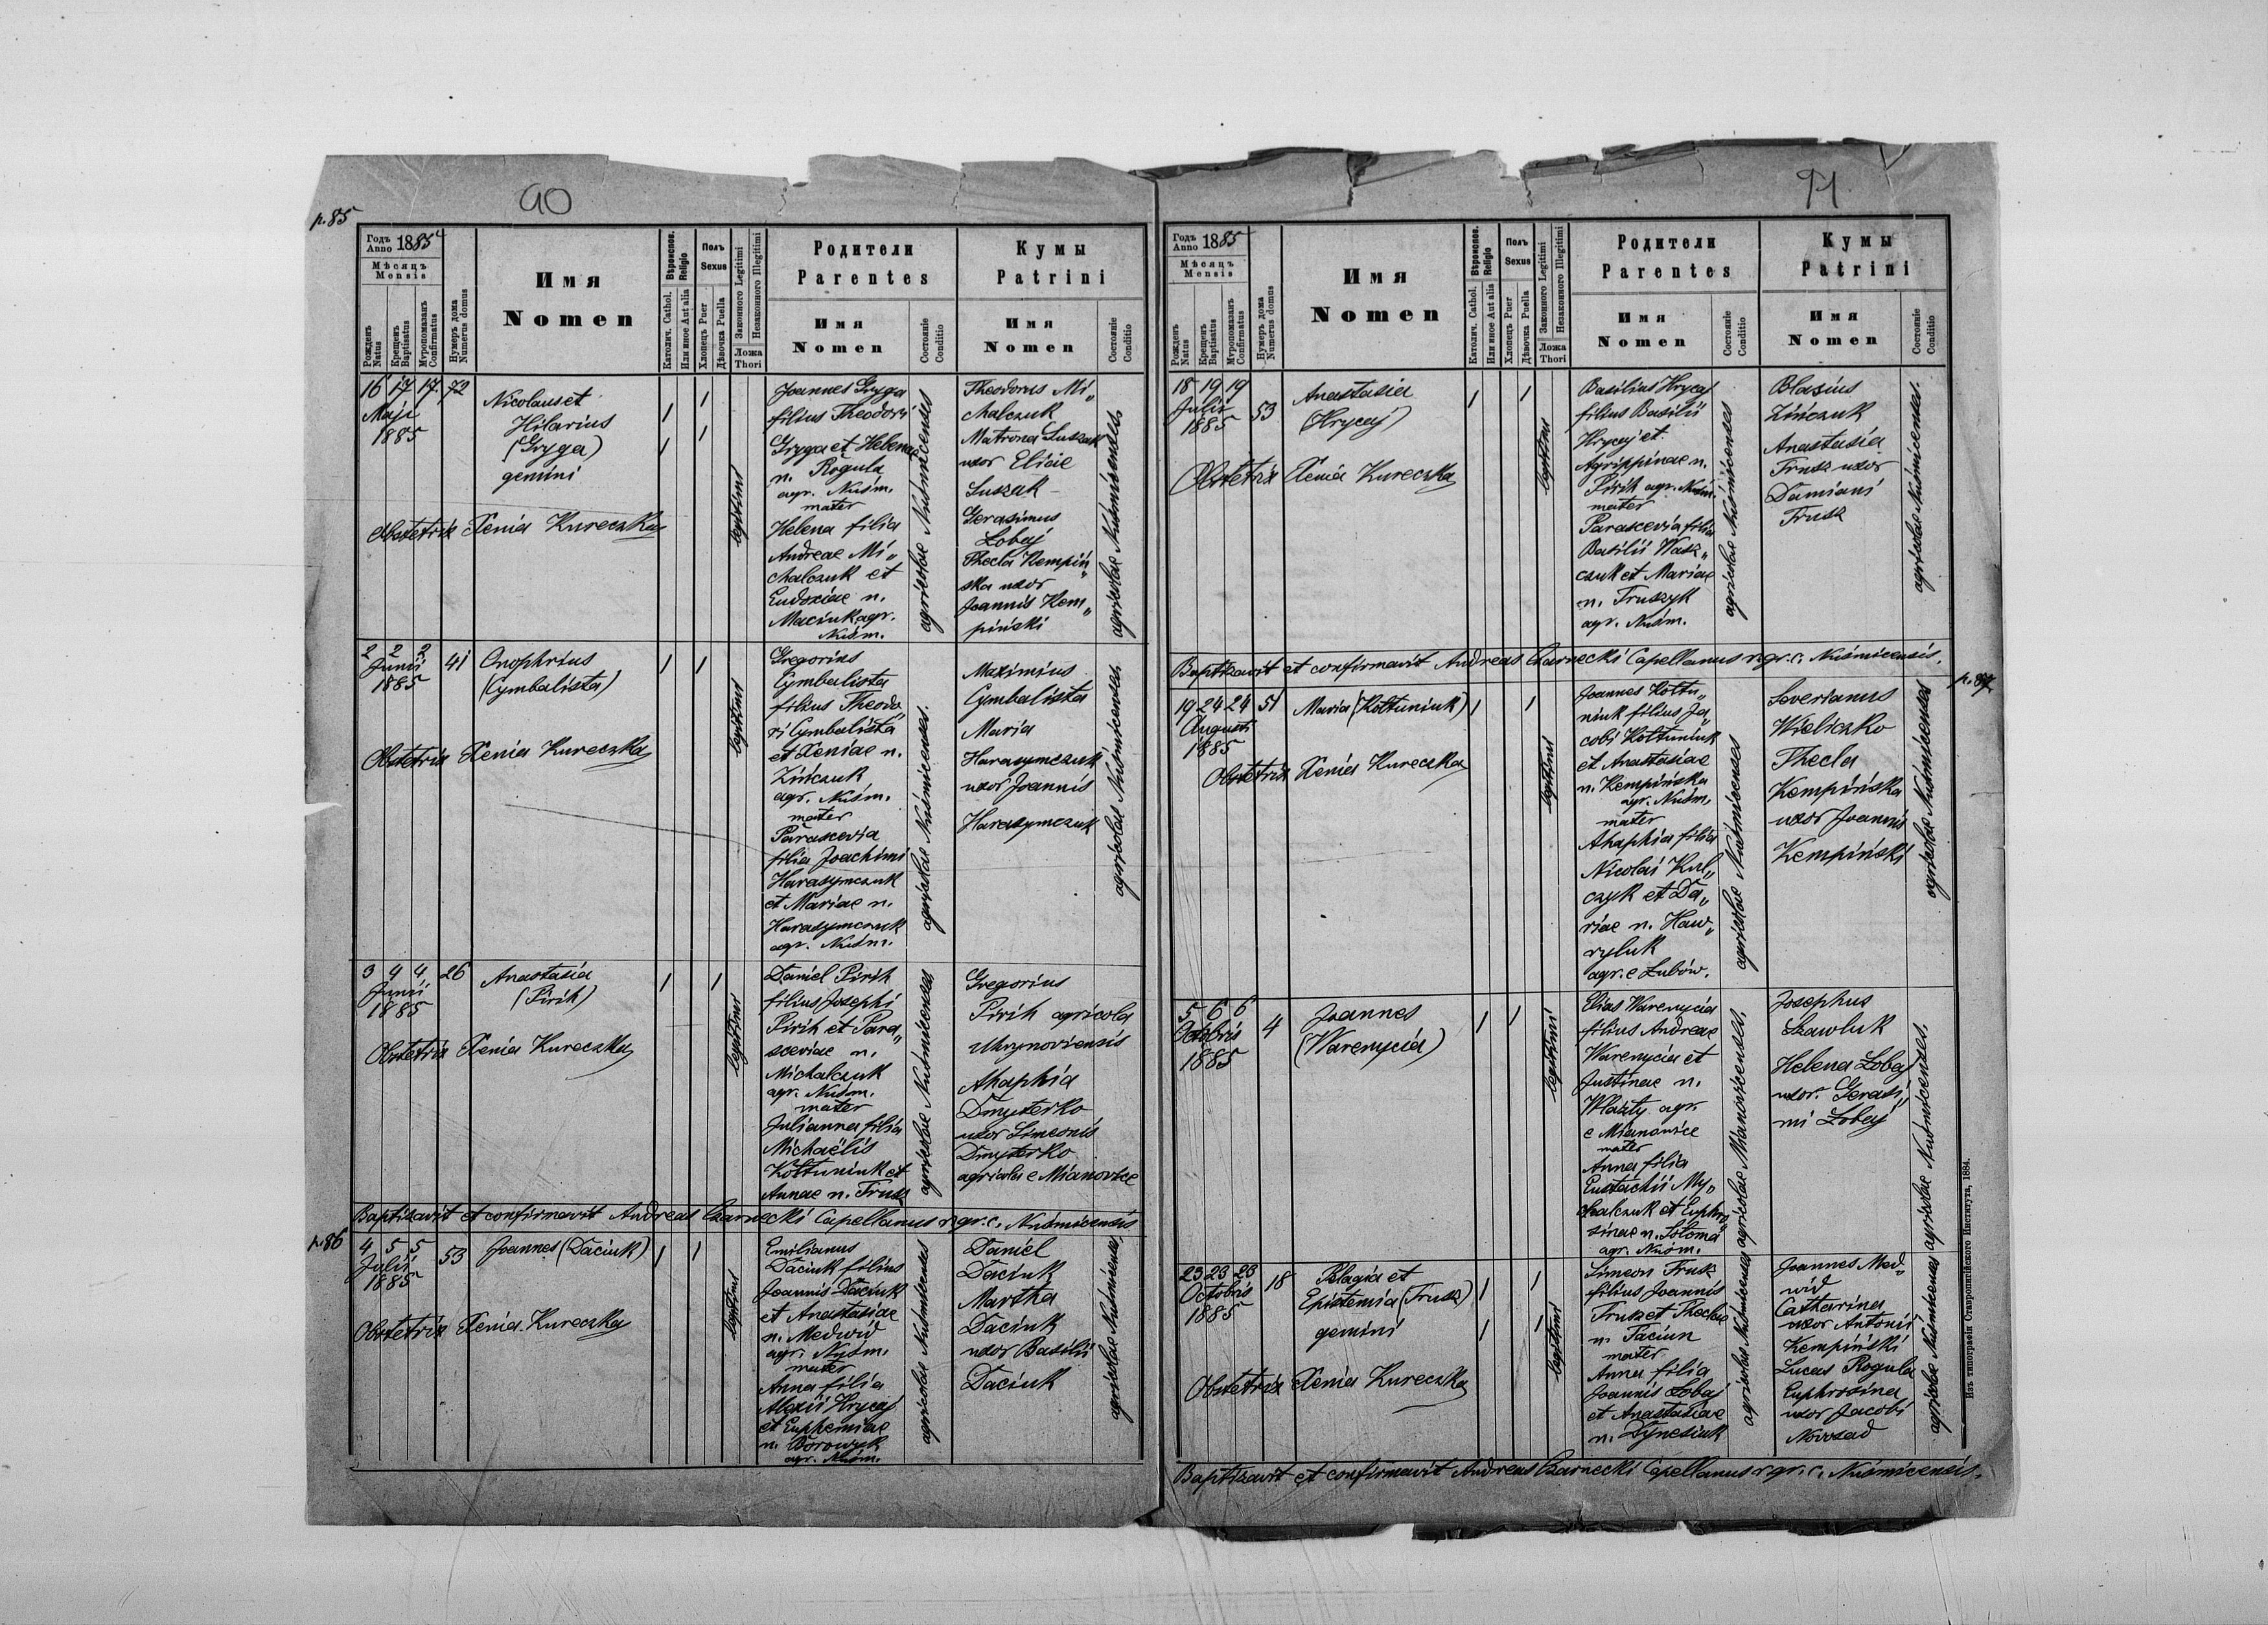 p. 85
90
Годъ Anno 1885
Мѣсяцъ
Mensis
Рожденъ Natus
Крещенъ Baptisatus
Мѵропомазанъ Confirmatus
Нумеръ дома Numerus domus
Имя
Nomen
Вѣроиспов. Religio
Католич. Cathol.
Или иное Aut alia
Полъ
Sexus
Хлопецъ Puer
Дѣвочка Puella
Законного Legitimi
Незаконного Illegitimi
Ложа
Thori
Родители
Parentes
Имя
Nomen
Состояніе Conditio
Кумы
Patrini
Имя
Nomen
Состояніе Conditio
16 17 17 72
Maji
1885
Nicolaus et
Hilarius
(Gryga)
gemini
Obstetrix Xenia Kureczka
1 1
1 1
legitimi
Joannes Gryga
filius Theodori
Gryga et Helenae
n. Rogula
agr. Nuśm.
mater
Helena filia
Andreae Mi„
chalczuk et
Eudoxiae n.
Maciuk agr.
Nuśm.
agricolae Nuśmicenses
Theodorus Mi„
chalczuk
Matrona Suszak
uxor Eliae
Suszak
Gerasimus
Łobaj
Thecla Kempiń„
ska uxor
Joannis Kem„
piński
agricolae Nuśmicenses
2 2 2 41
Junii
1885
Onophrius
(Cymbalista)
Obstetrix Xenia Kureczka
1 1
legitimi
Gregorius
Cymbalista
filius Theodo„
ri Cymbalista
et Xeniae n.
Zińczuk
agr. Nuśm.
mater
Parascevia
filia Joachimi
Harasymczuk
et Mariae n.
Harasymczuk
agr. Nuśm.
agricolae Nuśmicenses.
Maximius
Cymbalista
Maria
Harasymczuk
uxor Joannis
Harasymczuk
agricolae Nuśmicenses
3 4 4 26
Junii
1885
Anastasia
(Pirih)
Obstetrix Xenia Kureczka
1 1
legitimi
Daniel Pirih
filius Josephi
Pirih et Para„
sceviae n.
Michalczuk
agr. Nuśm.
mater
Julianna filia
Michaëlis
Kołtuniuk et
Annae n. Trusz
agricolae Nuśmicenses
Gregorius
Pirih agricola
Uhrynoviensis
Ahaphia
Dmyterko
uxor Simeonis
Dmyterko
agricolae e Mianovice
Baptizavit et confirmavit Andreas Czarnecki Capellanus r. gr. c. Nuśmicensis
p. 86
4 5 5 53
Julii
1885
Joannes (Daciuk)
Obstetrix Xenia Kureczka
1 1
legitimi
Emilianus
Daciuk filius
Joannis Daciuk
et Anastasiae
n. Medwid
agr. Nuśm.
mater
Anna filia
Alexii Hrycaj
et Euphemiae
n. Borowyk
agr. Nuśm.
agricolae Nuśmicenses
Daniel
Daciuk
Martha
Daciuk
uxor Basilii
Daciuk
agricolae Nuśmicenses
91
Годъ Anno 1885
Мѣсяцъ
Mensis
Рожденъ Natus
Крещенъ Baptisatus
Мѵропомазанъ Confirmatus
Нумеръ дома Numerus domus
Имя
Nomen
Вѣроиспов. Religio
Католич. Cathol.
Или иное Aut alia
Полъ
Sexus
Хлопецъ Puer
Дѣвочка Puella
Законного Legitimi
Незаконного Illegitimi
Ложа
Thori
Родители
Parentes
Имя
Nomen
Состояніе Conditio
Кумы
Patrini
Имя
Nomen
Состояніе Conditio
18 19 19
Julii 53
1885
Anastasia
(Hrycaj)
Obstetrix Xenia Kureczka
1 1
legitimi
Basilius Hrycaj
filius Basilii
Hrycaj et
Agrippinae n.
Pirih agr. Nuśm.
mater
Parascevia filia
Basilii Wasz„
czuk et Mariae
n. Truszyk
agr. Nuśm.
agricolae Nuśmicenses
Blasius
Zińczuk
Anastasia
Trusz uxor
Damiani
Trusz
agricolae Nuśmicenses.
Baptizavit et confirmavit Andreas Czarnecki Capellanus r. gr. c. Nuśmicensis.
p. 87
19 24 24 51
Augusti
1885
Maria (Kołtuniuk)
Obstetrix Xenia Kureczka
1 1
legitimi
Joannes Kołtu„
niuk filius Ja„
cobi Kołtuniuk
et Anastasiae
n. Kempińska
agr. Nuśm.
mater
Ahaphia filia
Nicolai Kul„
czyk et Da„
riae n. Haw„
ryluk
agr. e Łubów.
agricolae Nuśmicenses
Severianus
Wieliczko
Thecla
Kempińska
uxor Joannis
Kempiński
agricolae Nuśmicenses
5 6 6
Octobris 4
1885
Joannes
(Warenycia)
1 1
legitimi
Elias Warenycia
filius Andreae
Warenycia et
Justinae n.
agr.
e Mianowice
mater
Anna filia
Eustachii My„
chalczuk et Euphro
sinae n. Sołoma
agr. Nuśm.
agricolae Mianovicenses.
Josephus
Szawluk
Helena Łobaj
uxor. Gerasi„
mi Łobaj
agricolae Nuśmicenses.
23 23 23 18
Octobris
1885
Pelagia et
Epistemia (Trusz)
gemini
Obstetrix Xenia Kureczka
1 1
1 1
legitimi
Simeon Trusz
filius Joannis
Trusz et Theclae
n. Taciun
mater
Anna filia
Joannis Łobaj
et Anastasiae
n. Dynesiuk
agricolae Nuśmicenses
Joannes Med„
wid
Catharina
uxor Antonii
Kempiński
Lucas Rogula
Euphrosina
uxor Jacobi
Novosad
agricolae Nuśmicenses
Baptizavit et confirmavit Andreas Czarnecki Capellanus r. gr. c. Nuśmicensis.
Изъ типографіи Ставропигійского Института, 1884.